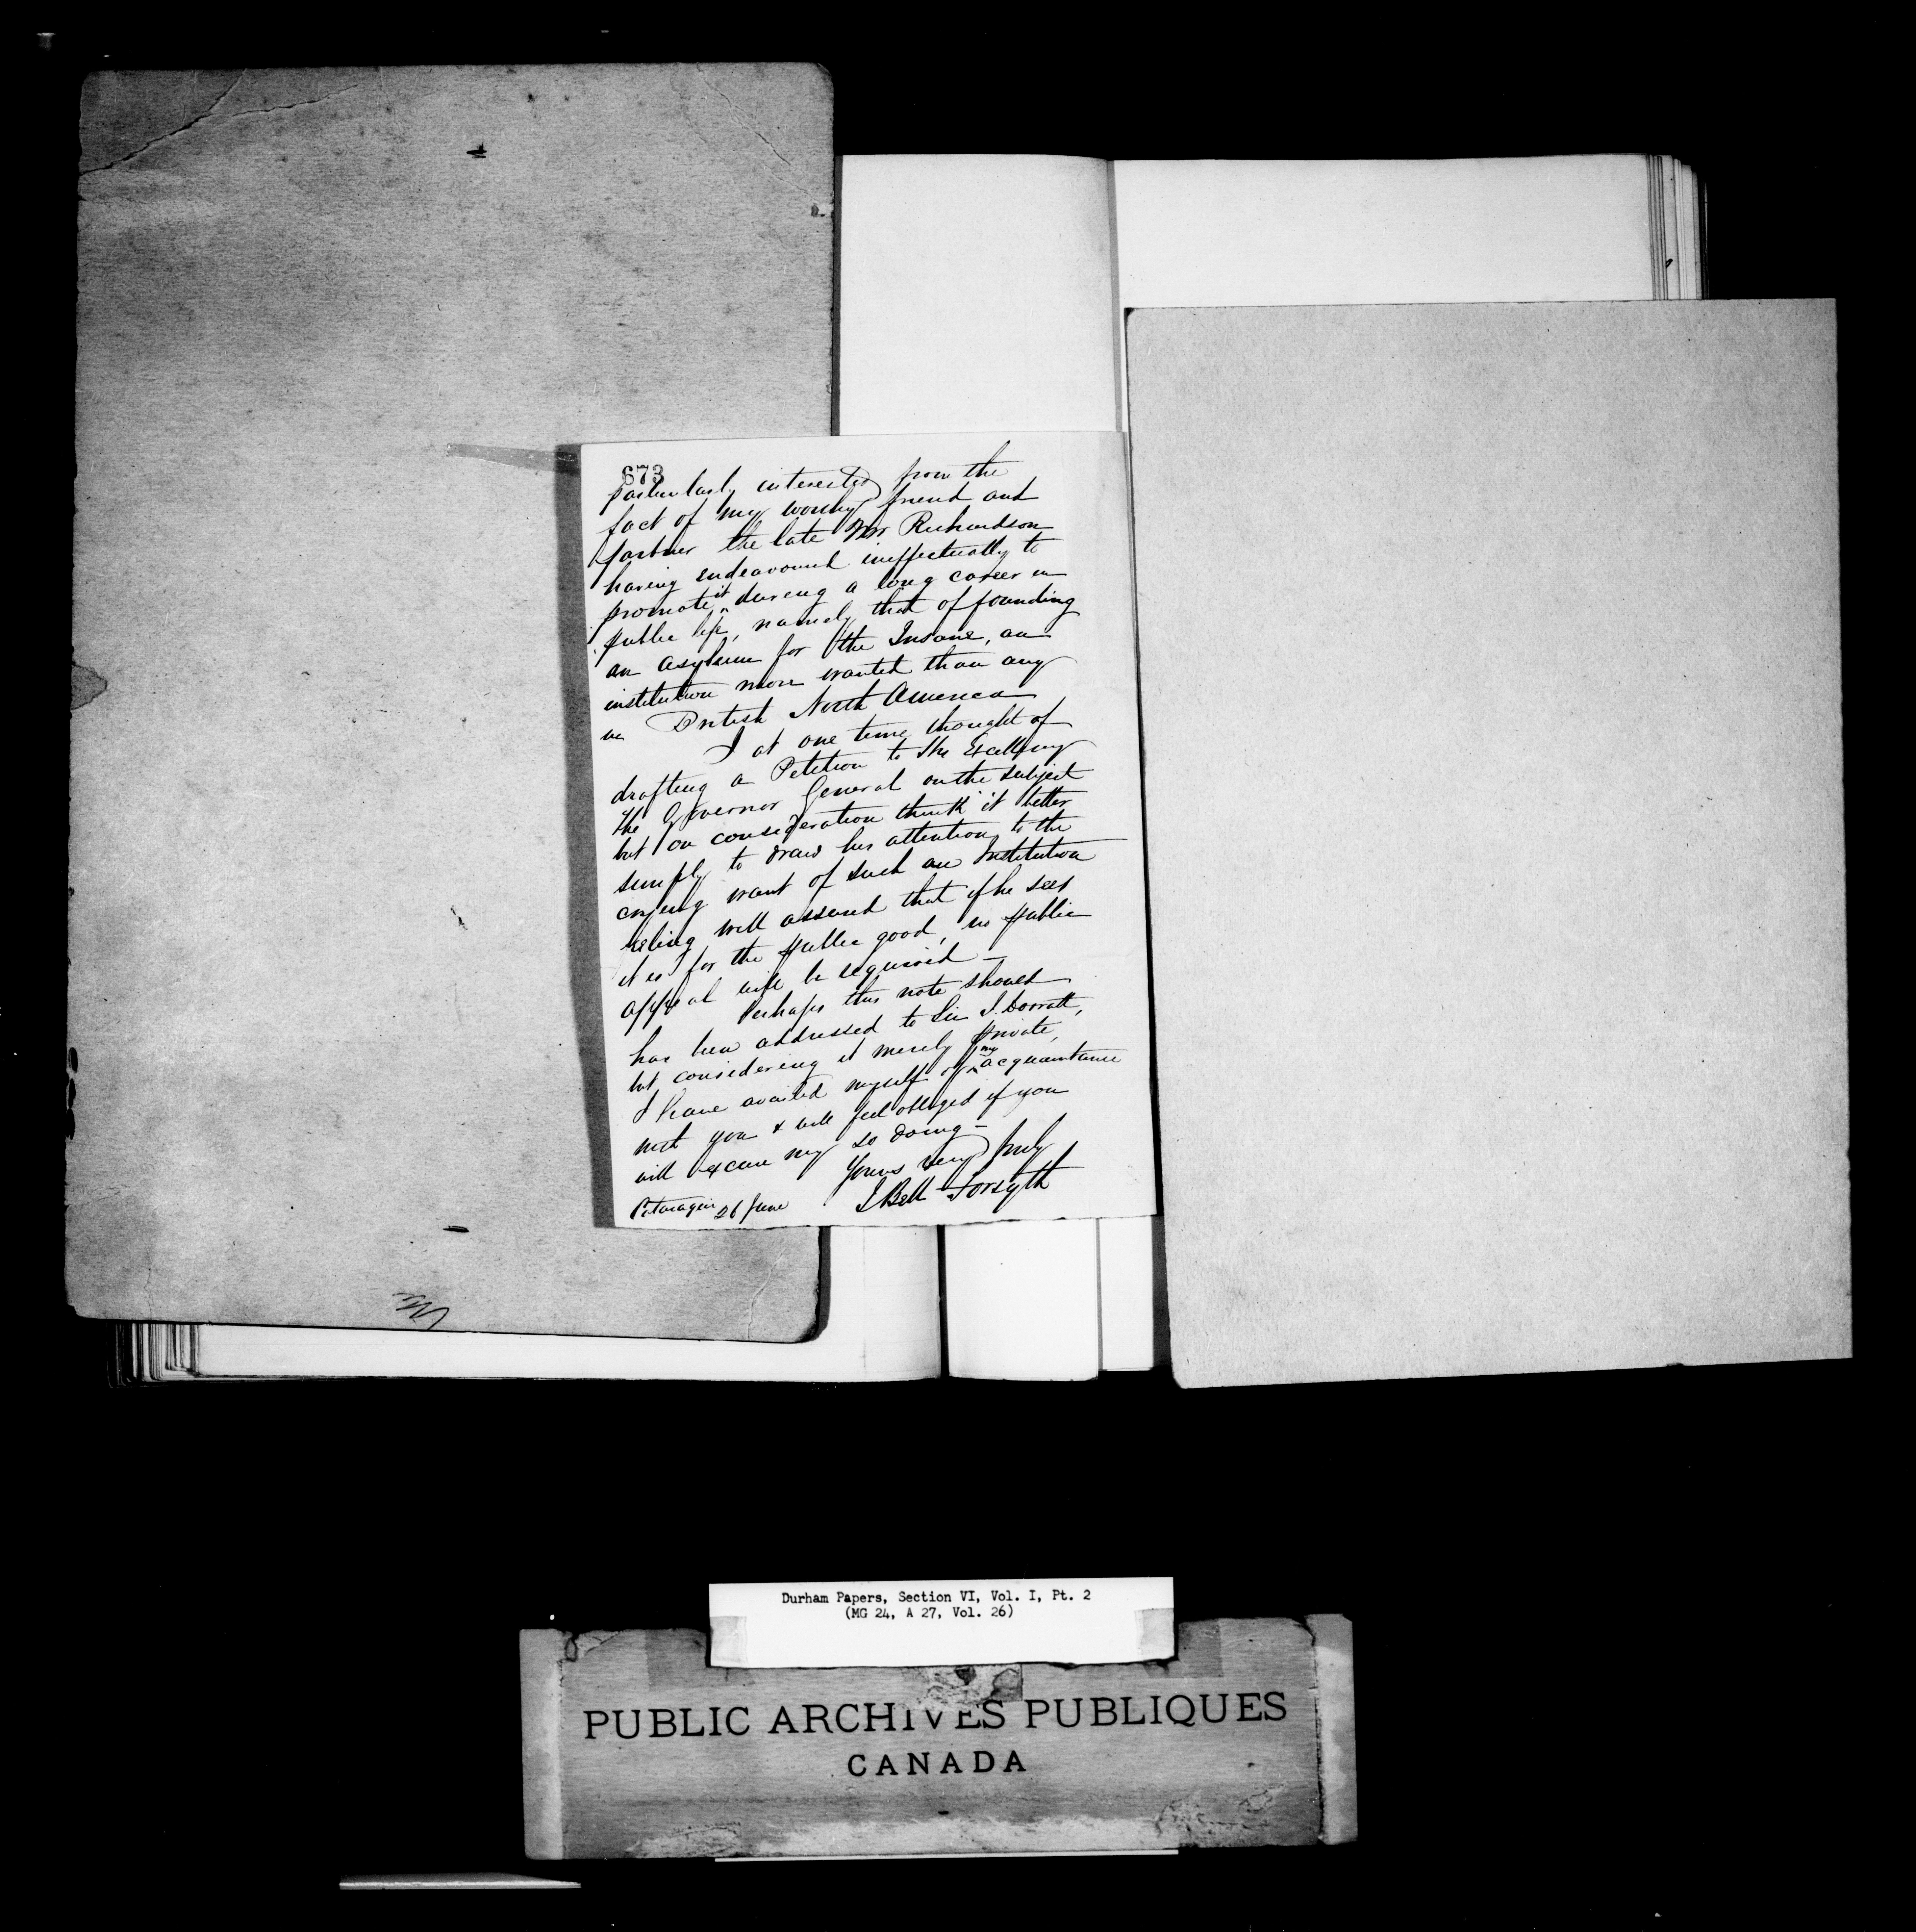 673
particularly interested from the
fact of my worthy friend and
partner the late Mr Richardson
having endeavoured ineffectually to
promote it during a long career in
public life, namely that of founding
an Asylum for the Insane, an
institution more wanted than any
in British North America
I at one time thought of
drafting a Petition to His Excellency
the Governor General on the subject
but on consideration think it better
simply to draw his attention to the
crying want of such an Institution
being well assured that if he sees
it is for the public good, no public
appeal will be required —
Perhaps this note should
have been addressed to Sir J. Dorratt,
but considering it merely private,
I have availed myself of my acquaintance
with you & will feel obliged if you
will excuse my so doing —
Yours very truly
J Bell Forsyth
26 June
Durham Papers, Section VI, Vol. I, Pt. 2
(MG 24, A 27, Vol. 26)
PUBLIC ARCHIVES PUBLIQUES
CANADA